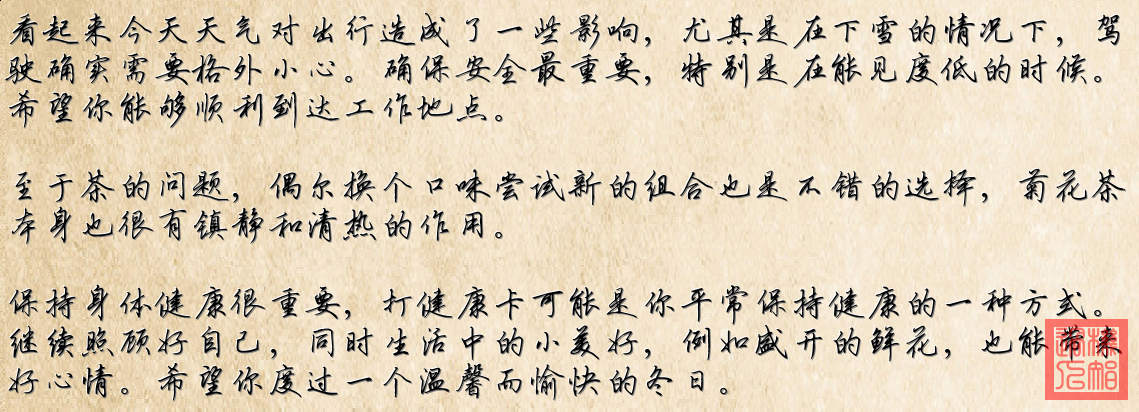 看起来今天天气对出行造成了一些影响，尤其是在下雪的情况下，驾
驶确实需要格外小心。确保安全最重要，特别是在能见度低的时候。
希望你能够顺利到达工作地点。
至于茶的问题，偶尔换个口味尝试新的组合也是不错的选择，菊花茶
本身也很有镇静和清热的作用。
保持身体健康很重要，打健康卡可能是你平常保持健康的一种方式。
继续照顾好自己，同时生活中的小美好，例如盛开的鲜花，也能带来
好心情。希望你度过一个温馨而愉快的冬日。